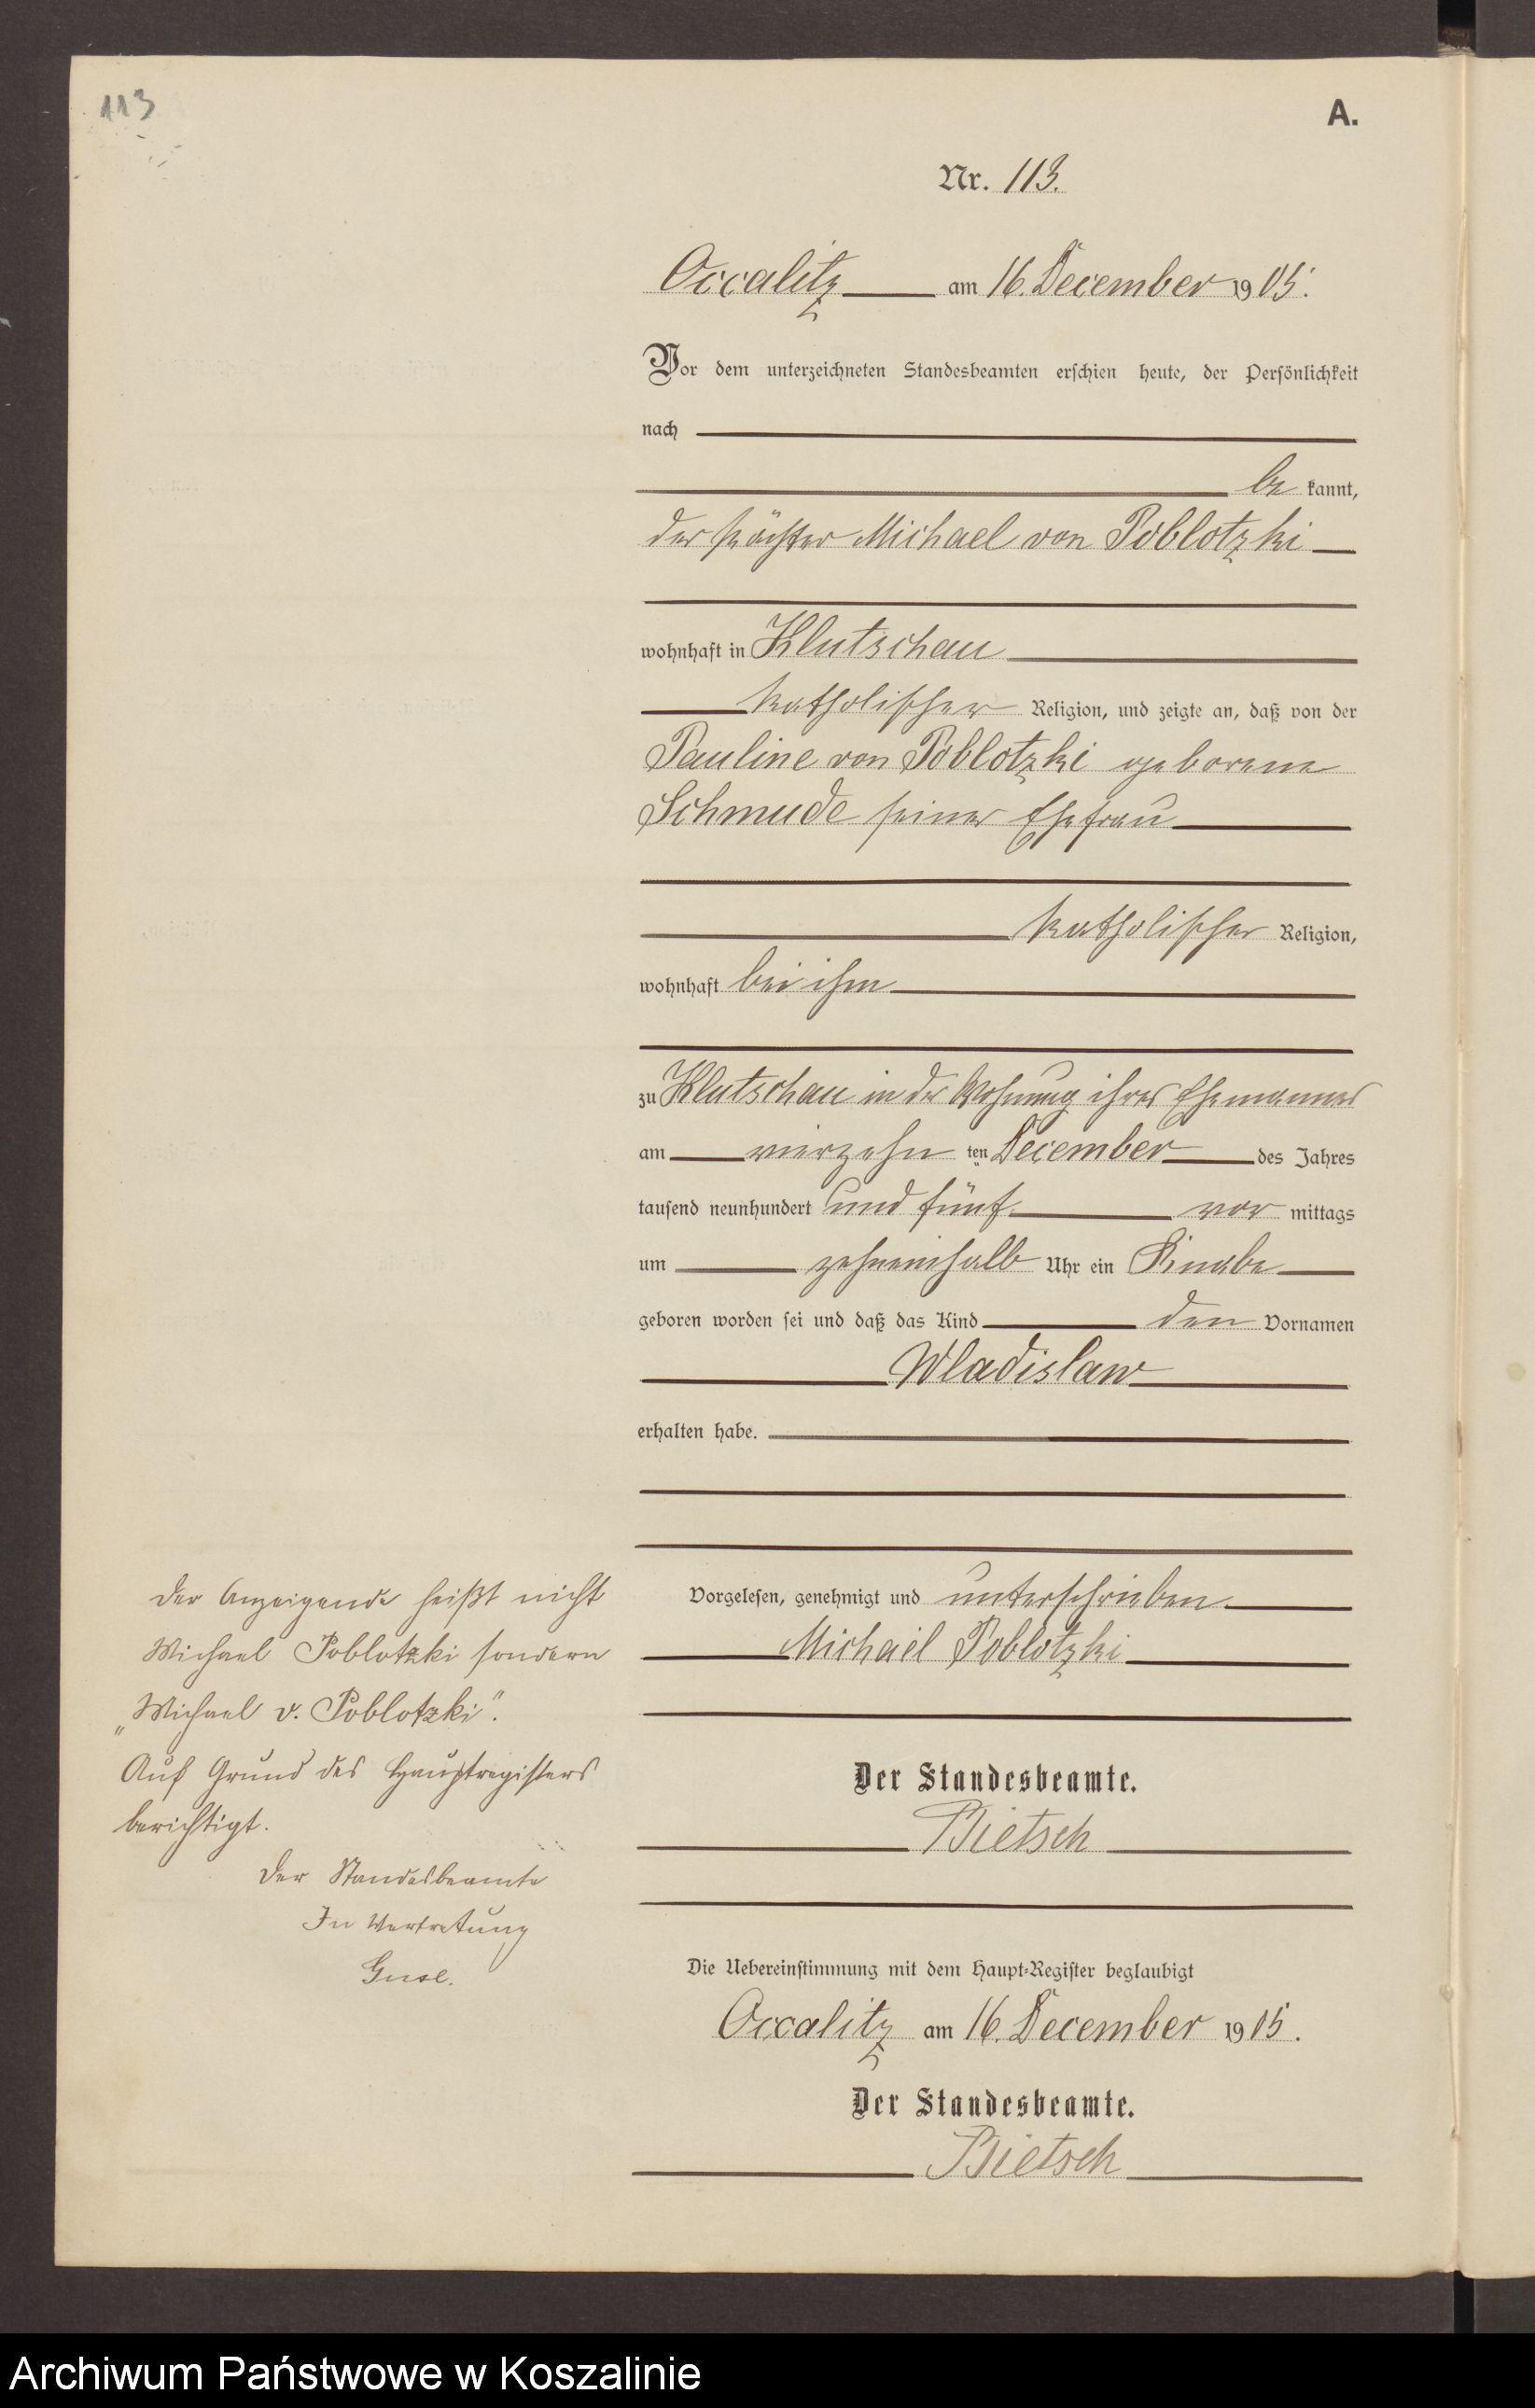 113
A.
Nr. 113.
Occalitz am 16. December 1905.
Vor dem unterzeichneten Standesbeamten erschien heute, der Persönlichkeit
nach
be kannt,
der Pächter Michael von Poblotzki
wohnhaft in Klutschau
katholischer Religion, und zeigte an, daß von der
Pauline von Poblotzki geborene
Schmude seiner Ehefrau
katholischer Religion,
wohnhaft bei ihm
zu Klutschau in der Wohnung ihres Ehemannes
am vierzehn ten December des Jahres
tausend neunhundert und fünf vor mittags
um zehneinhalb Uhr ein Knabe
geboren worden sei und daß das Kind den Vornamen
Wladislaw
erhalten habe.
Vorgelesen, genehmigt und unterschrieben
Michael Poblotzki
Der Standesbeamte.
Bietsch
Der Anzeigende heißt nicht
Michael Poblotzki sondern
„Michael v. Poblotzki".
Auf Grund des Hauptregisters
berichtigt.
Der Standesbeamte
In Vertretung
Guse.
Die Uebereinstimmung mit dem Haupt-Register beglaubigt
Occalitz am 16. December 1905.
Der Standesbeamte.
Bietsch
Archiwum Państwowe w Koszalinie